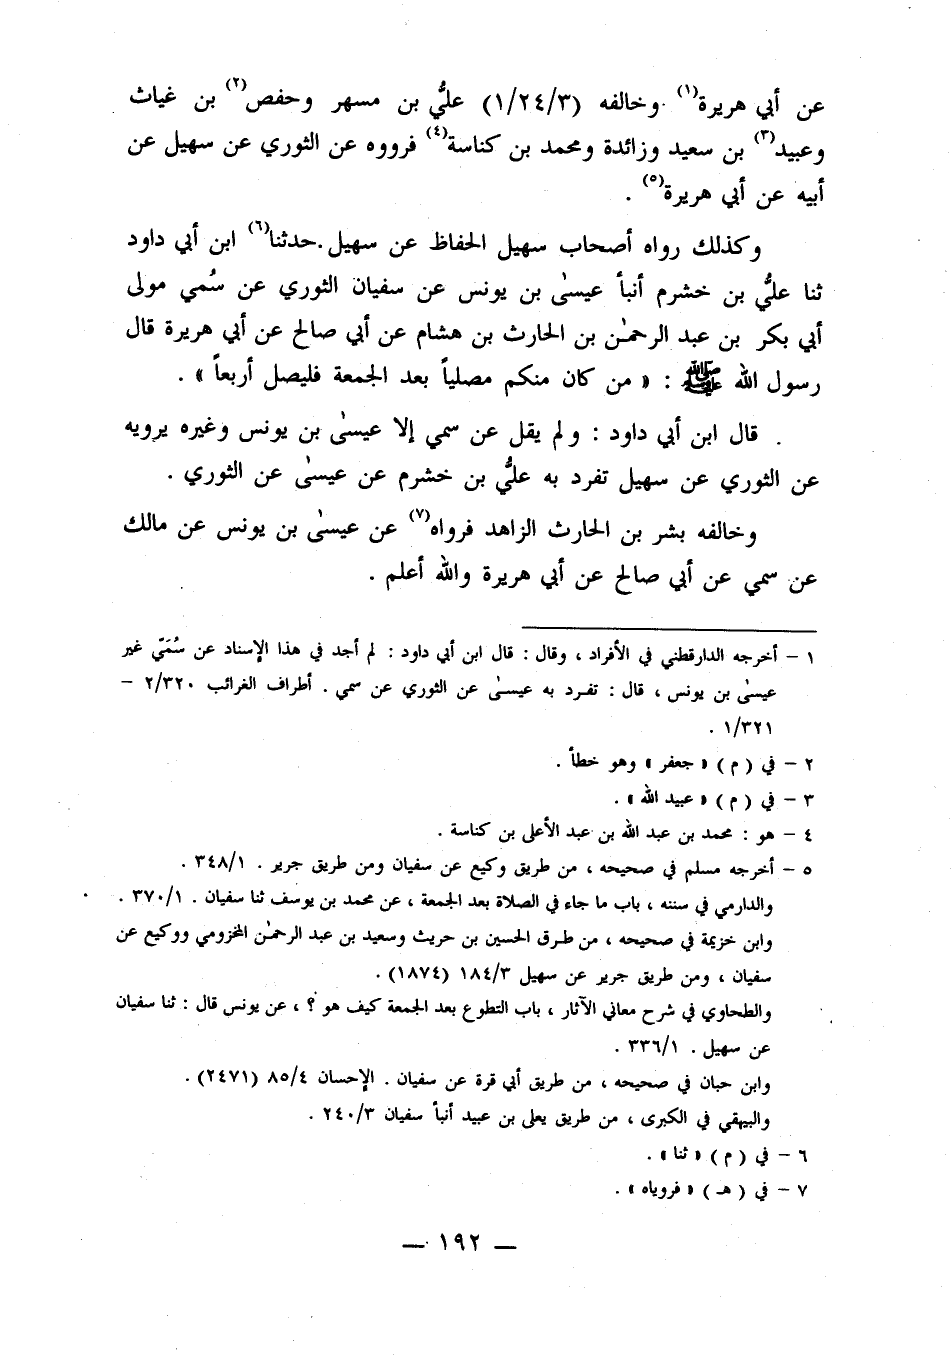 عن أبي هريرة(١) . وخالفه (١/٢٤/٣) عليُّ بن مسهر وحفص(٢) بن غياث
وعبيد(٣) بن سعيد وزائدة ومحمد بن كناسة(٤) فرووه عن الثوري عن سهيل عن
أبيه عن أبي هريرة(٥) .
وكذلك رواه أصحاب سهيل الحفاظ عن سهيل . حدثنا(٦) ابن أبي داود
ثنا عليُّ بن خشرم أنبأ عيسىٰ بن يونس عن سفيان الثوري عن سُمي مولى
أبي بكر بن عبد الرحمٰن بن الحارث بن هشام عن أبي صالح عن أبي هريرة قال
رسول الله ﷺ : « من كان منكم مصلياً بعد الجمعة فليصل أربعاً » .
. قال ابن أبي داود : ولم يقل عن سمي إلا عيسىٰ بن يونس وغيره يرويه
عن الثوري عن سهيل تفرد به عليُّ بن خشرم عن عيسىٰ عن الثوري .
وخالفه بشر بن الحارث الزاهد فرواه(٧) عن عيسىٰ بن يونس عن مالك
عن سمي عن أبي صالح عن أبي هريرة والله أعلم .
١ – أخرجه الدارقطني في الأفراد ، وقال : قال ابن أبي داود : لم أجد في هذا الإسناد عن سُمَيّ غير
عيسىٰ بن يونس ، قال : تفرد به عيسىٰ عن الثوري عن سمي . أطراف الغرائب ٢/٣٢٠ –
١/٣٢١ .
٢ – في ( م ) « جعفر » وهو خطأ .
٣ – في ( م ) « عبيد الله » .
٤ – هو : محمد بن عبد الله بن عبد الأعلى بن كناسة .
٥ – أخرجه مسلم في صحيحه ، من طريق وكيع عن سفيان ومن طريق جرير . ٣٤٨/١ .
والدارمي في سننه ، باب ما جاء في الصلاة بعد الجمعة ، عن محمد بن يوسف ثنا سفيان . ٣٧٠/١ .
وابن خزيمة في صحيحه ، من طرق الحسين بن حريث وسعيد بن عبد الرحمٰن المخزومي ووكيع عن
سفيان ، ومن طريق جرير عن سهيل ١٨٤/٣ (١٨٧٤) .
والطحاوي في شرح معاني الآثار ، باب التطوع بعد الجمعة كيف هو ؟ ، عن يونس قال : ثنا سفيان
عن سهيل . ٣٣٦/١ .
وابن حبان في صحيحه ، من طريق أبي قرة عن سفيان . الإحسان ٨٥/٤ (٢٤٧١) .
والبيهقي في الكبرى ، من طريق يعلى بن عبيد أنبأ سفيان ٢٤٠/٣ .
٦ – في ( م ) « ثنا » .
٧ – في ( هـ ) « فروياه » .
— ١٩٢ —